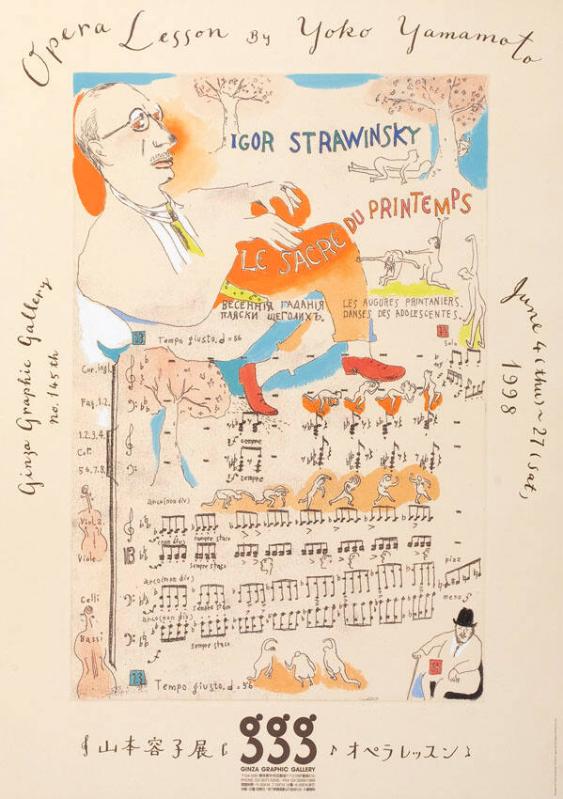 Opera Lesson By Yoko Yamamoto
IGOR STRAWINSKY
LE SACRE DU PRINTEMPS
Ginza Graphic Gallery
no. 145th
June 4 (thu) ~ 27 (sat)
1998
ВЕСЕННІЯ ГАДАНІЯ
ПЛЯСКИ ЩЕГОЛИХЪ.
LES AUGURES PRINTANIERS.
DANSES DES ADOLESCENTES.
13 Tempo giusto. d = 56
13
Solo
Cor. ingl.
Fag. 1. 2.
1.2.3.4.
Cor.
5.6.7.8.
sf sempre
sf sempre
arco (non div)
Viol. 2.
sempre stacc.
(non div)
Viole
sempre stacc.
pizz
arco (non div)
Celli
sempre stacc.
meno f
arco (non div)
Bassi
sempre stacc.
f
13 Tempo giusto. d = 56
山本容子展
ggg
オペラレッスン
GINZA GRAPHIC GALLERY